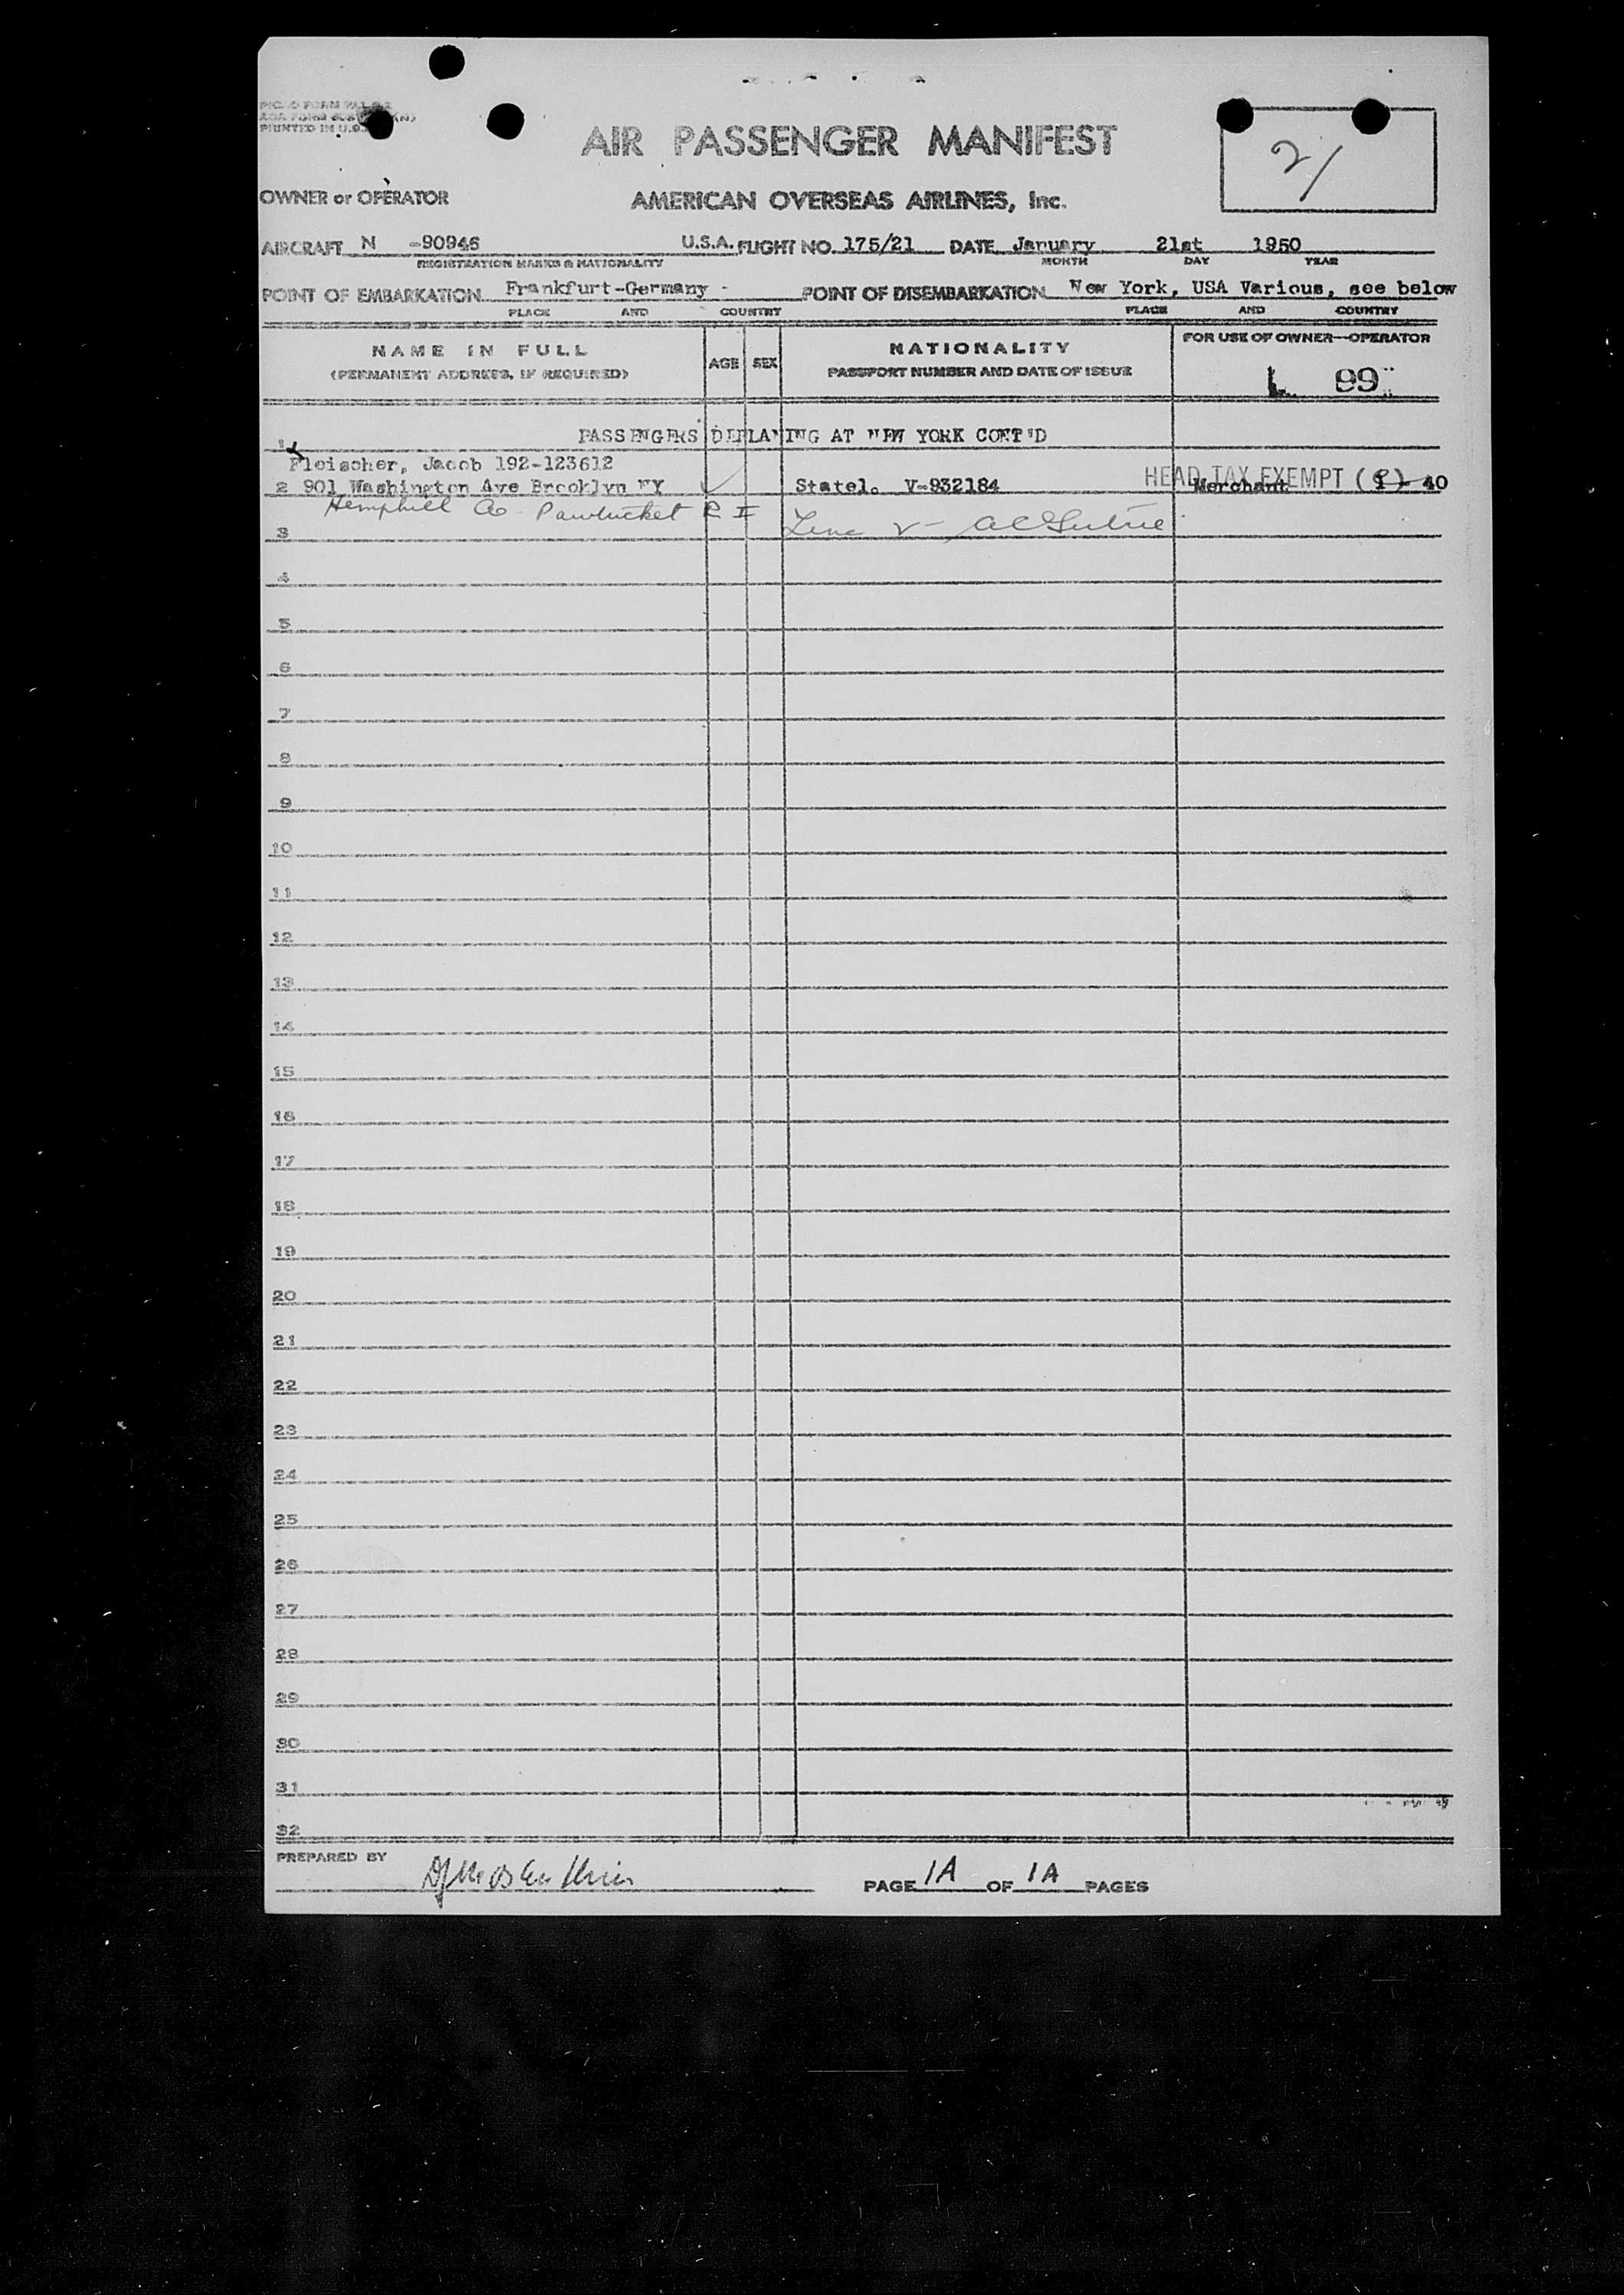 PRINTED IN U.S.
AIR PASSENGER MANIFEST
21
OWNER or OPERATOR AMERICAN OVERSEAS AIRLINES, Inc.
AIRCRAFT N -90946 U.S.A. FLIGHT NO. 175/21 DATE January 21st 1950
REGISTRATION MARKS & NATIONALITY MONTH DAY YEAR
POINT OF EMBARKATION Frankfurt-Germany - POINT OF DISEMBARKATION New York, USA Various, see below
PLACE AND COUNTRY PLACE AND COUNTRY
NAME IN FULL AGE SEX NATIONALITY FOR USE OF OWNER—OPERATOR
(PERMANENT ADDRESS, IF REQUIRED) PASSPORT NUMBER AND DATE OF ISSUE L 99
1 PASSENGERS DEPLANING AT NEW YORK CONT'D
Fleischer, Jacob 192-123612
2 901 Washington Ave Brooklyn NY Statel. V-932184 HEAD TAX EXEMPT Merchant 40
Hemphill Co - Pawtucket R I
3
4
5
6
7
8
9
10
11
12
13
14
15
16
17
18
19
20
21
22
23
24
25
26
27
28
29
30
31
32
PREPARED BY
PAGE 1A OF 1A PAGES